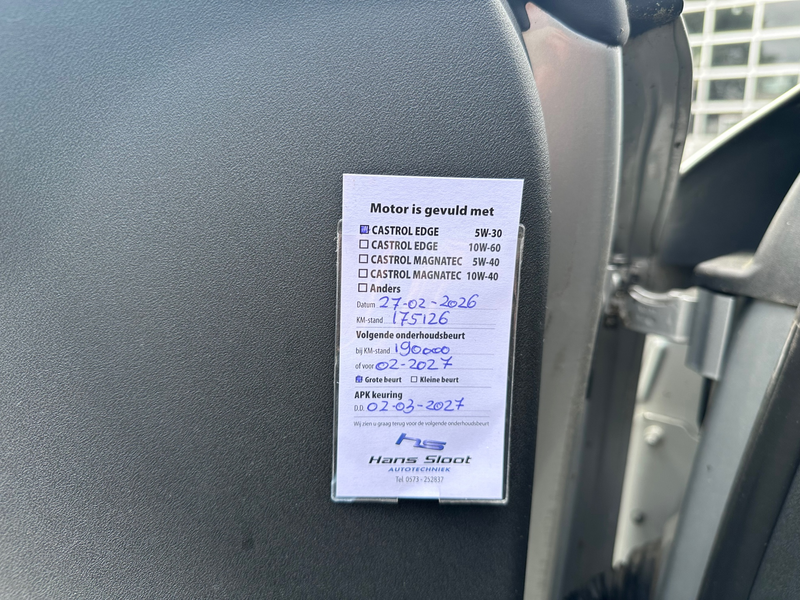 Motor is gevuld met
CASTROL EDGE 5W-30
CASTROL EDGE 10W-60
CASTROL MAGNATEC 5W-40
CASTROL MAGNATEC 10W-40
Anders
Datum 27-02-2026
KM-stand 175126
Volgende onderhoudsbeurt
bij KM-stand 190000
of voor 02-2027
Grote beurt Kleine beurt
APK keuring
D.D. 02-03-2027
Wij zien u graag terug voor de volgende onderhoudsbeurt
hs
Hans Sloot
AUTOTECHNIEK
Tel. 0573-252837